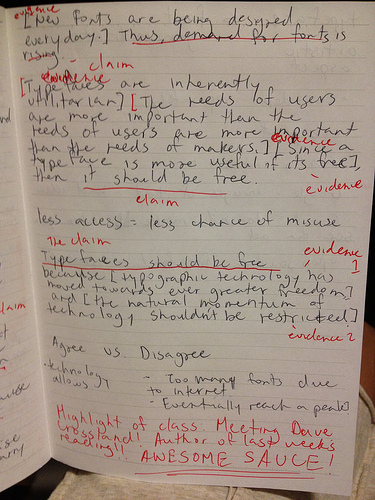 evidence
[New fonts are being designed
everyday.] Thus, demand for fonts is
rising - claim
evidence
[Typefaces are inherently
utilitarian] [The needs of users
are more important than the
needs of users are more important
than the needs of makers.] evidence [Since a
typeface is more useful if its free],
then it should be free.
evidence
claim
less access = less chance of misuse
The claim
evidence
1
Typefaces should be free
because [typographic technology has
moved towards ever greater freedom]
and [the natural momentum of
technology shouldnt be restricted.]
evidence 2
Agree vs. Disagree
- technology
allows it
- Too many fonts due
to internet
- Eventually reach a peak
Highlight of class: Meeting Dave
Crossland! Author of last week's
reading!! AWESOME SAUCE!